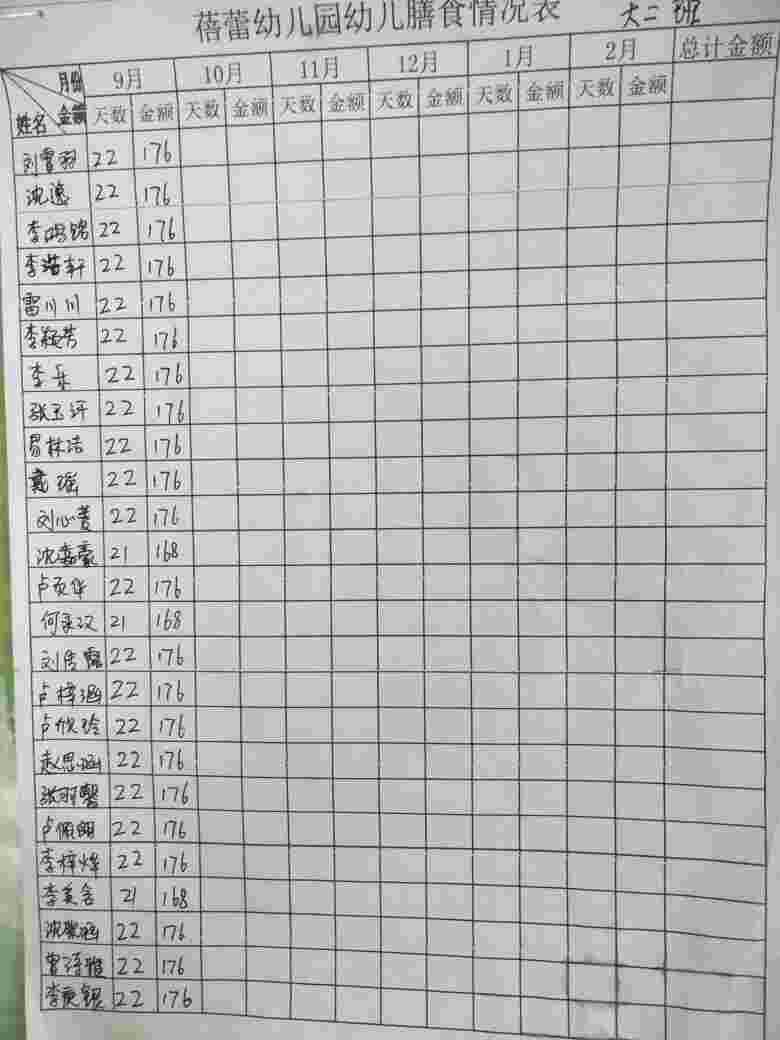 蓓蕾幼儿园幼儿膳食情况表 大二班
月份 9月 10月 11月 12月 1月 2月 总计金额
姓名 金额 天数 金额 天数 金额 天数 金额 天数 金额 天数 金额 天数 金额
刘雪羽 22 176
沈逸 22 176
李鸿铭 22 176
李浩轩 22 176
雷川川 22 176
李颖芳 22 176
李乐 22 176
张玉评 22 176
易林洁 22 176
戴瑶 22 176
刘心菱 22 176
沈嘉豪 21 168
卢奕华 22 176
何承汶 21 168
刘 22 176
卢梓涵 22 176
卢欣玲 22 176
赵思涵 22 176
张羽馨 22 176
卢佩 22 176
李梓烨 22 176
李美含 21 168
沈 涵 22 176
曾诗雅 22 176
李 22 176